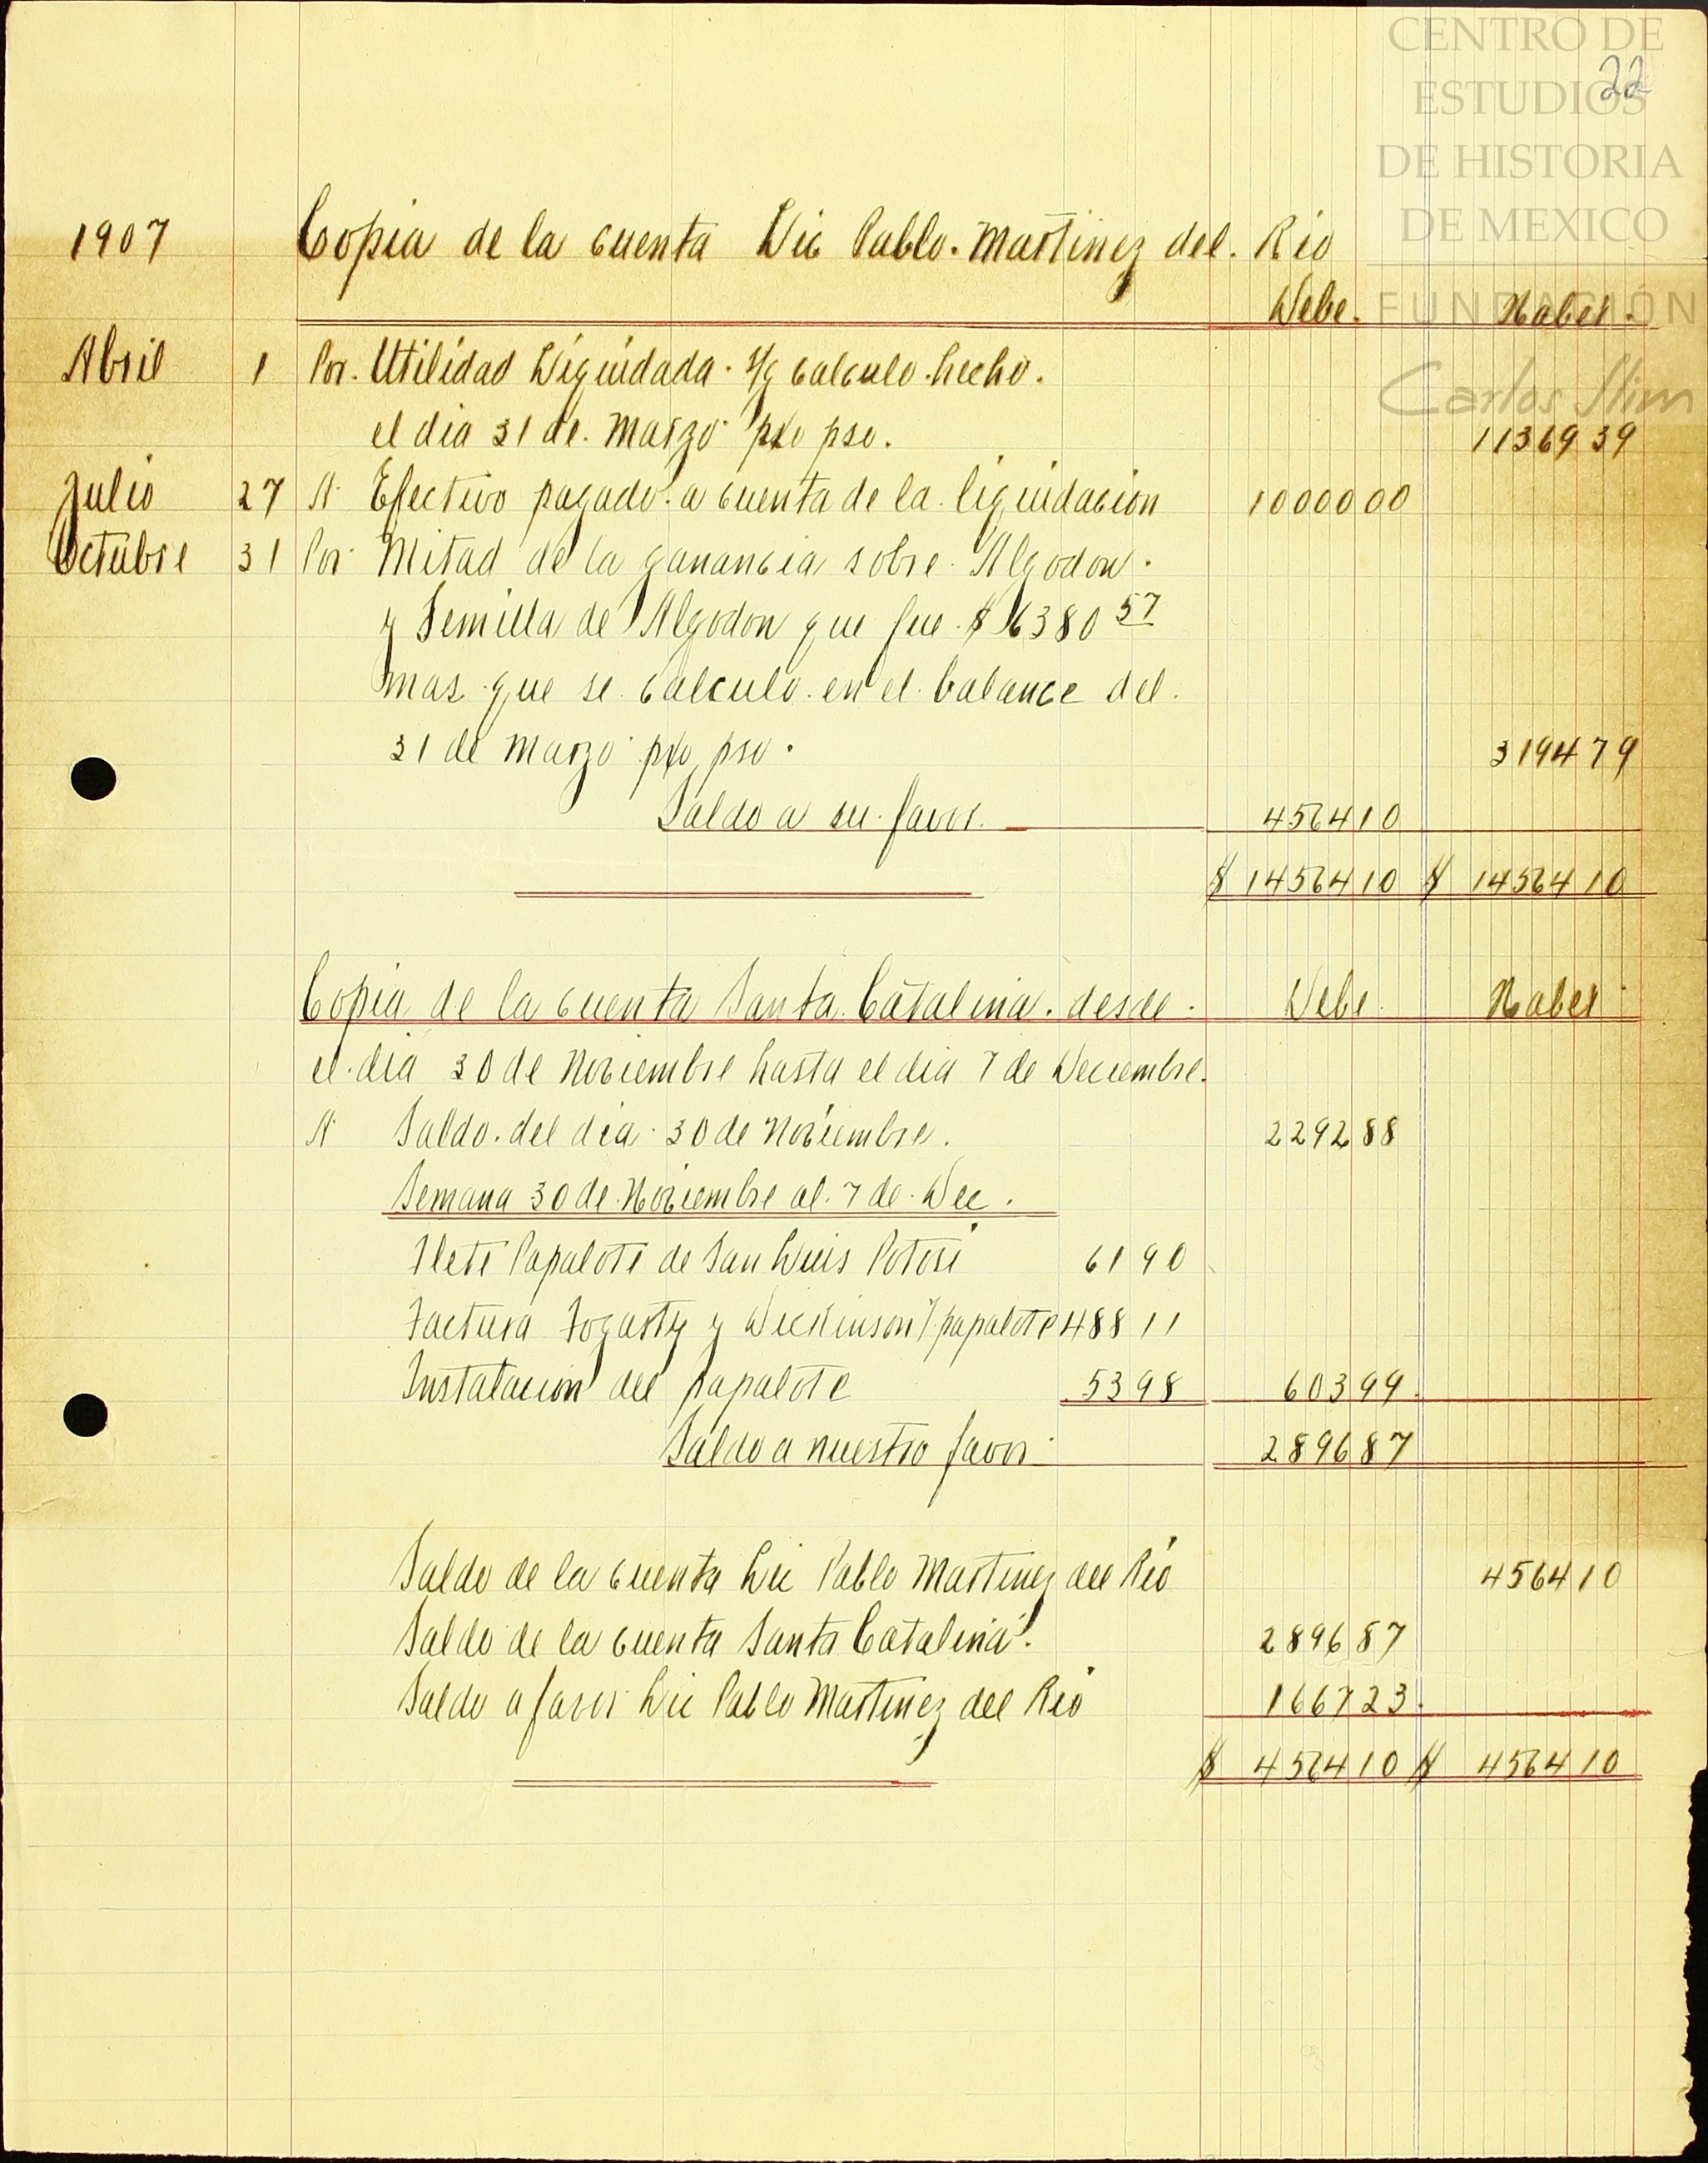 CENTRO DE
ESTUDIOS
DE HISTORIA
DE MEXICO
FUNDACIÓN
Carlos Slim
22
1907 Copia de la cuenta Lic Pablo. Martinez del. Rio
Debe. Haber.
Abril 1 Por. Utilidad Liquidada. s/g calculo. hecho.
el dia 31 de. Marzo pxo pso. 11369 39
Julio 27 A Efectivo pagado. a cuenta de la liquidacion 10000 00
Octubre 31 Por Mitad de la ganancia sobre. Algodon.
y Semilla de Algodon que fue $ 6380 57
mas que se calculo en el balance del.
31 de Marzo pxo pso. 3194 79
Saldo a su favor. 4564 10
$ 14564 10 $ 14564 10
Copia de la cuenta Santa Catalina. desde. Debe. Haber
el dia 30 de Noviembre hasta el dia 7 de Deciembre.
A Saldo. del dia 30 de Noviembre. 2292 88
Semana 30 de Noviembre al. 7 de Dec.
Flete Papalote de San Luis Potosi 61 90
Factura Fogarty y Dickinson / papalote 488 11
Instalacion del papalote 53 98 603 99.
Saldo a nuestro favor 2896 87
Saldo de la cuenta Lic Pablo Martinez del Rio 4564 10
Saldo de la cuenta Santa Catalina. 2896 87
Saldo a favor Lic Pablo Martinez del Rio 1667 23.
$ 4564 10 $ 4564 10